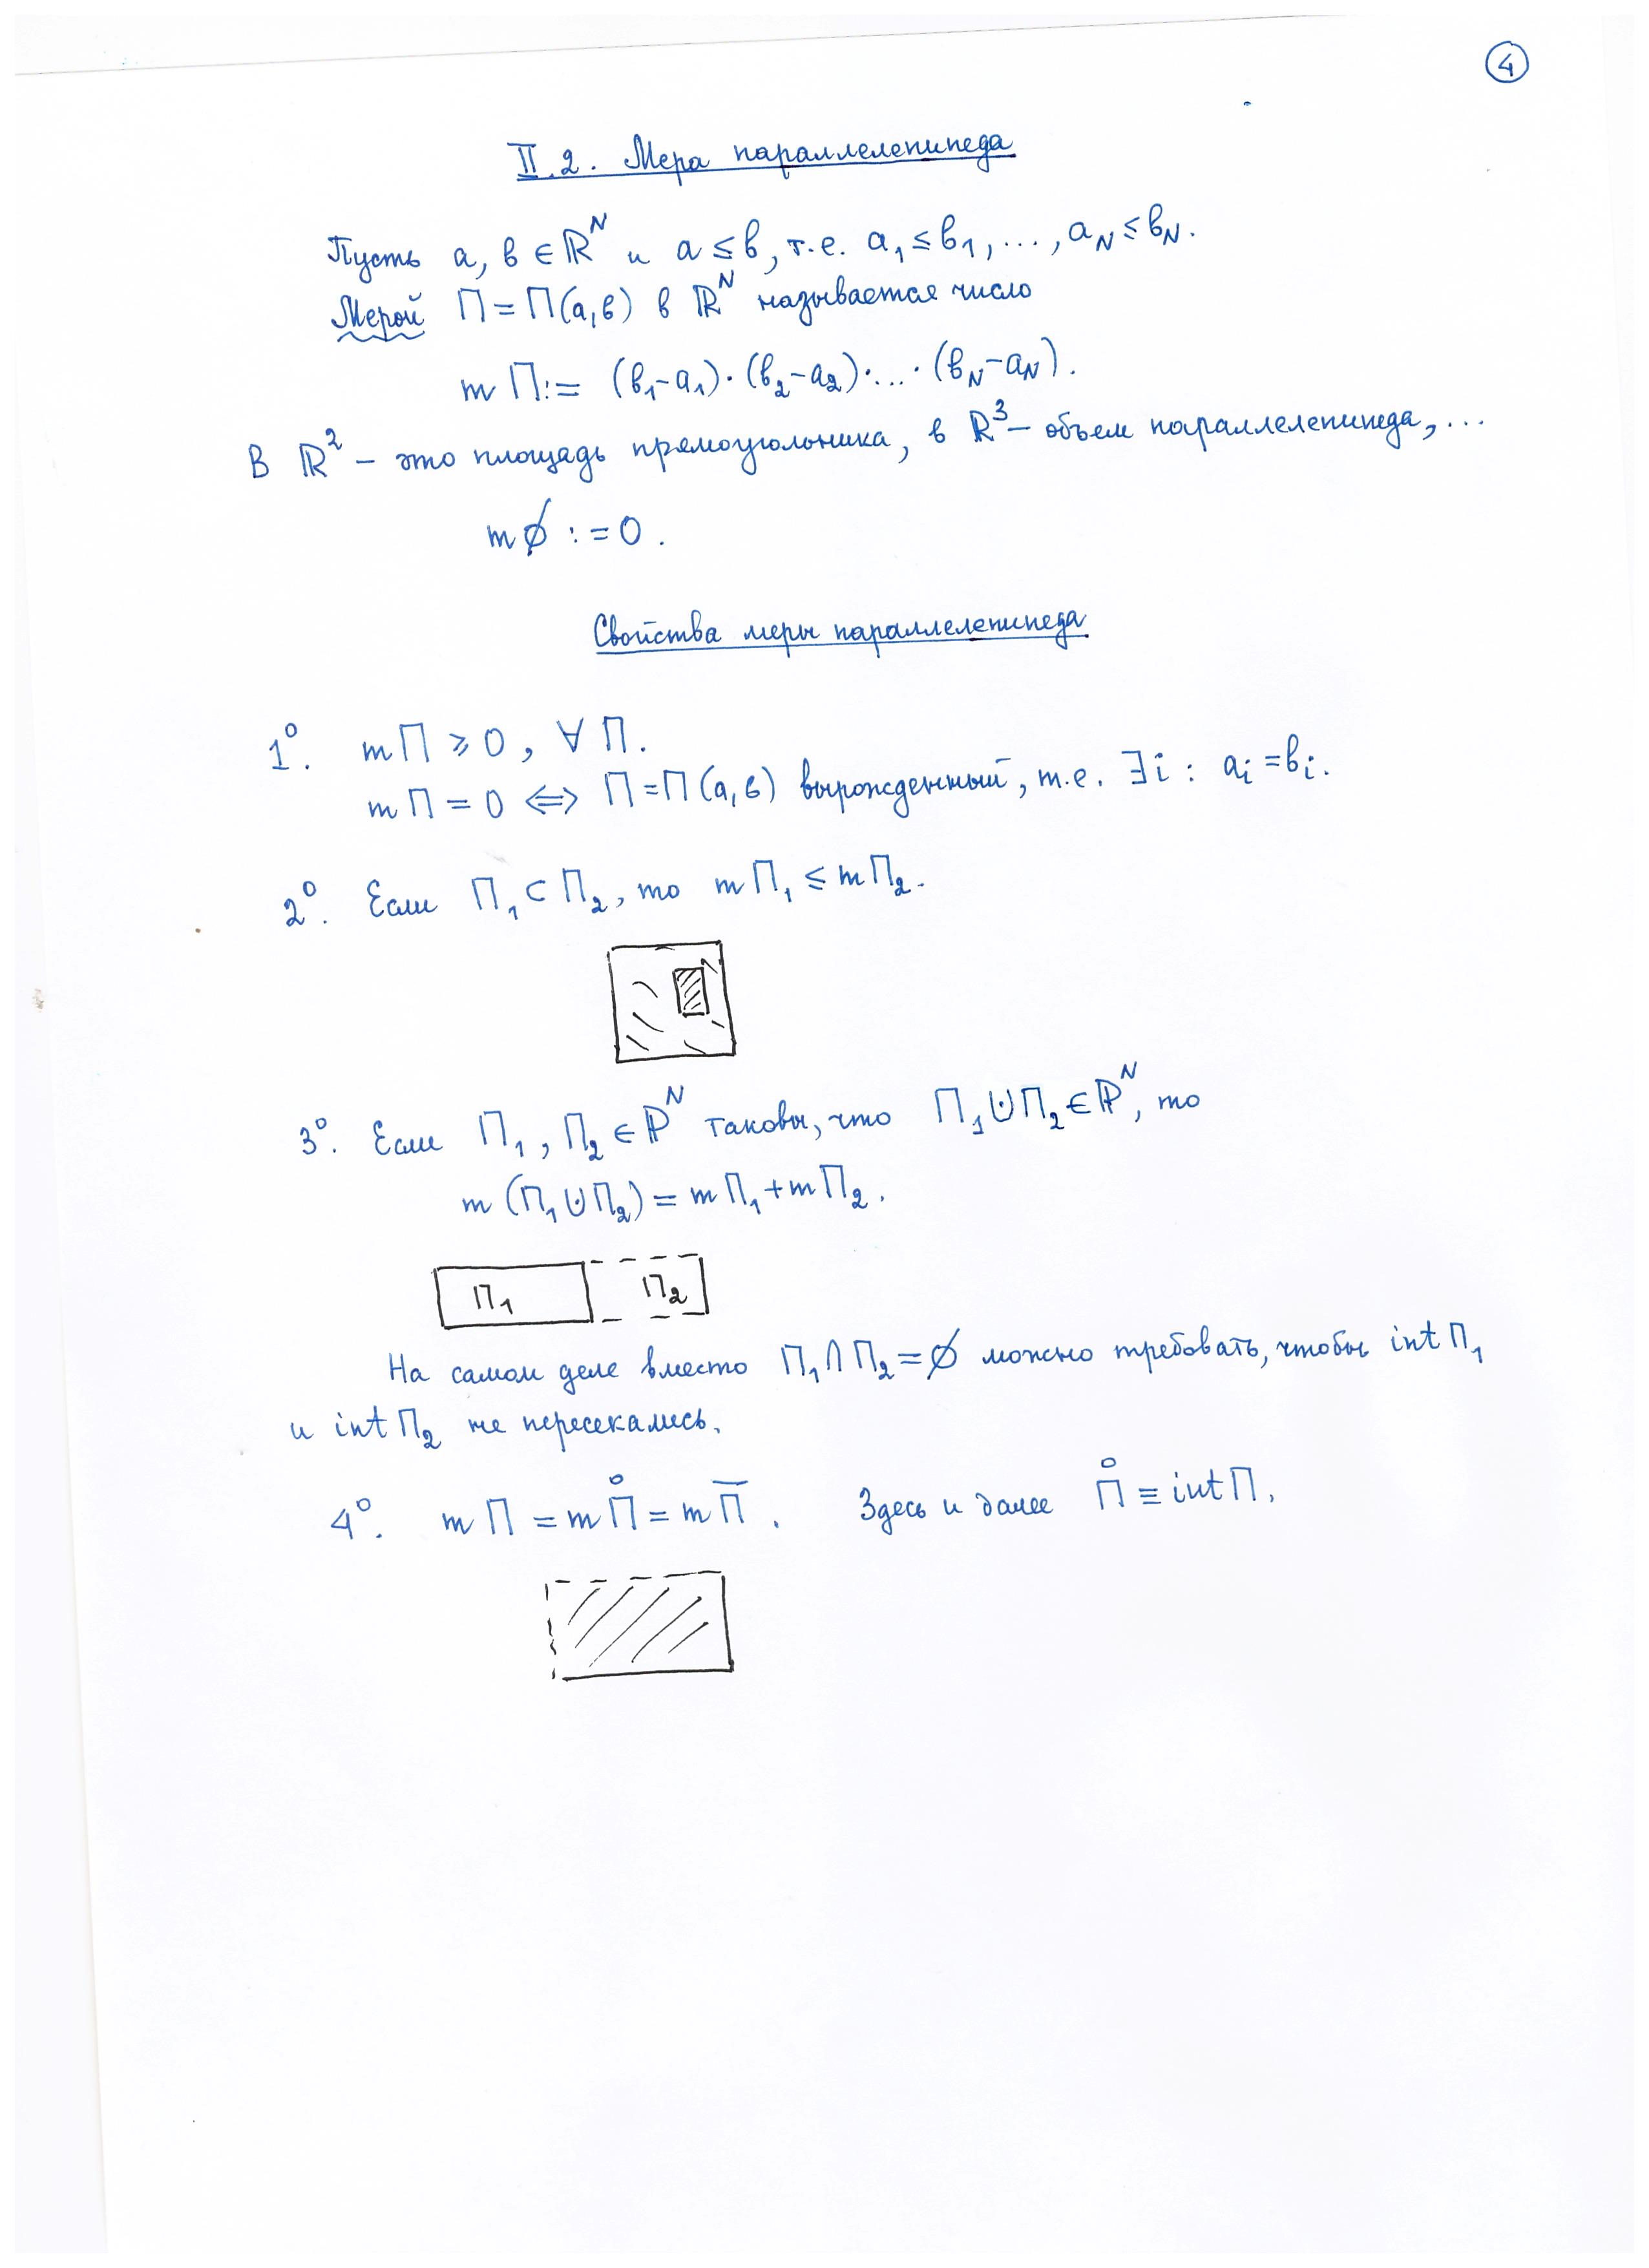 4
II.2. Мера параллелепипеда
Пусть a, b ∈ ℝᴺ и a ≤ b, т.е. a₁ ≤ b₁, ..., a_N ≤ b_N.
Мерой П = П(a,b) в ℝᴺ называется число
m П := (b₁-a₁)·(b₂-a₂)·...·(b_N-a_N).
В ℝ² – это площадь прямоугольника, в ℝ³ – объем параллелепипеда, ...
m ∅ := 0.
Свойства меры параллелепипеда
1°. m П ⩾ 0, ∀ П.
m П = 0 ⟺ П = П(a,b) вырожденный, т.е. ∃i : a_i = b_i.
2°. Если П₁ ⊂ П₂, то m П₁ ≤ m П₂.
3°. Если П₁, П₂ ∈ ℙᴺ таковы, что П₁ ⊍ П₂ ∈ ℙᴺ, то
m (П₁ ⊍ П₂) = m П₁ + m П₂.
П₁ П₂
На самом деле вместо П₁ ∩ П₂ = ∅ можно требовать, чтобы int П₁
и int П₂ не пересекались.
4°. m П = m П̊ = m П̅. Здесь и далее П̊ ≡ int П.